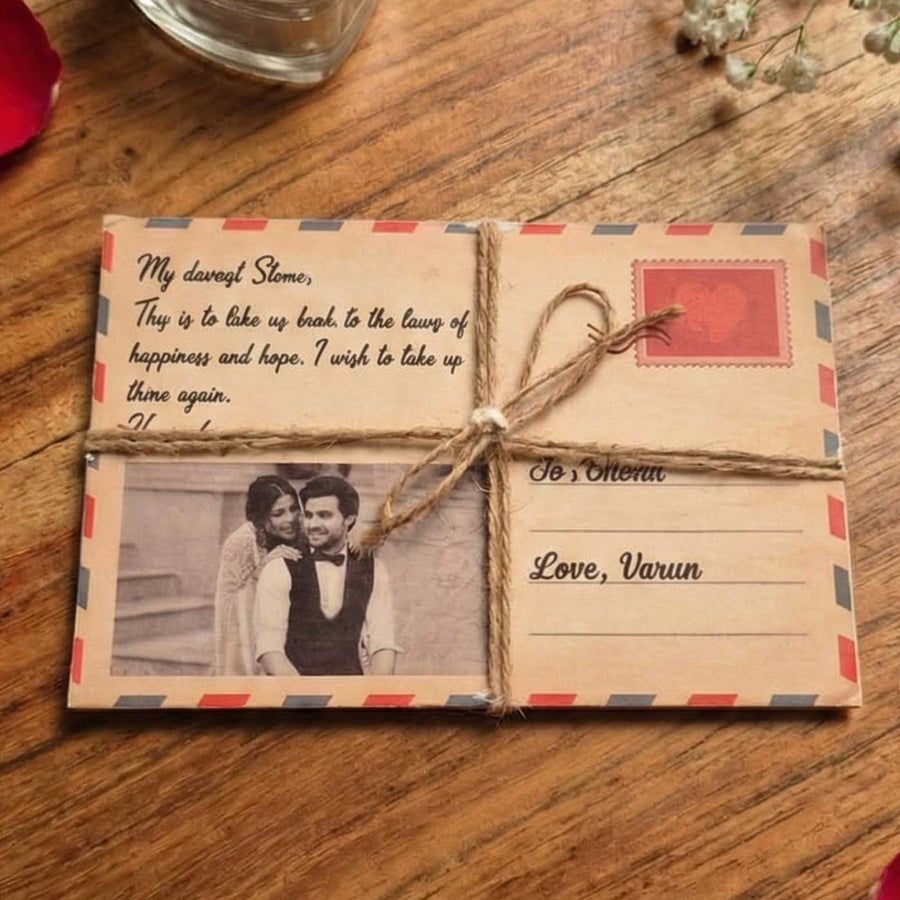 My davagt Stome,
Thy is to lake us brak, to the lawy of
happiness and hope. I wish to take up
thine again.
To,
Love, Varun